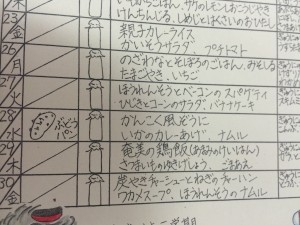 木
けんちんじる、しめじとはくさいのおひたし
23
金
親子カレーライス
かいそうサラダ、プチトマト
26
月
のざわなとそぼろのごはん、みそしる
たまごやき、いちご
27
火
ほうれんそうとベーコンのスパゲティ
ひじきとコーンのサラダ、バナナケーキ
28
水
ぶどうパン
がんこく風ぞうに
いかのカレーあげ、ナムル
29
木
奄美の鶏飯(あまみのけいはん)
さつまいものゆきげしょう、ごまあえ
30
金
炭やきチャーシューとねぎのチャーハン
ワカメスープ、ほうれんそうのナムル